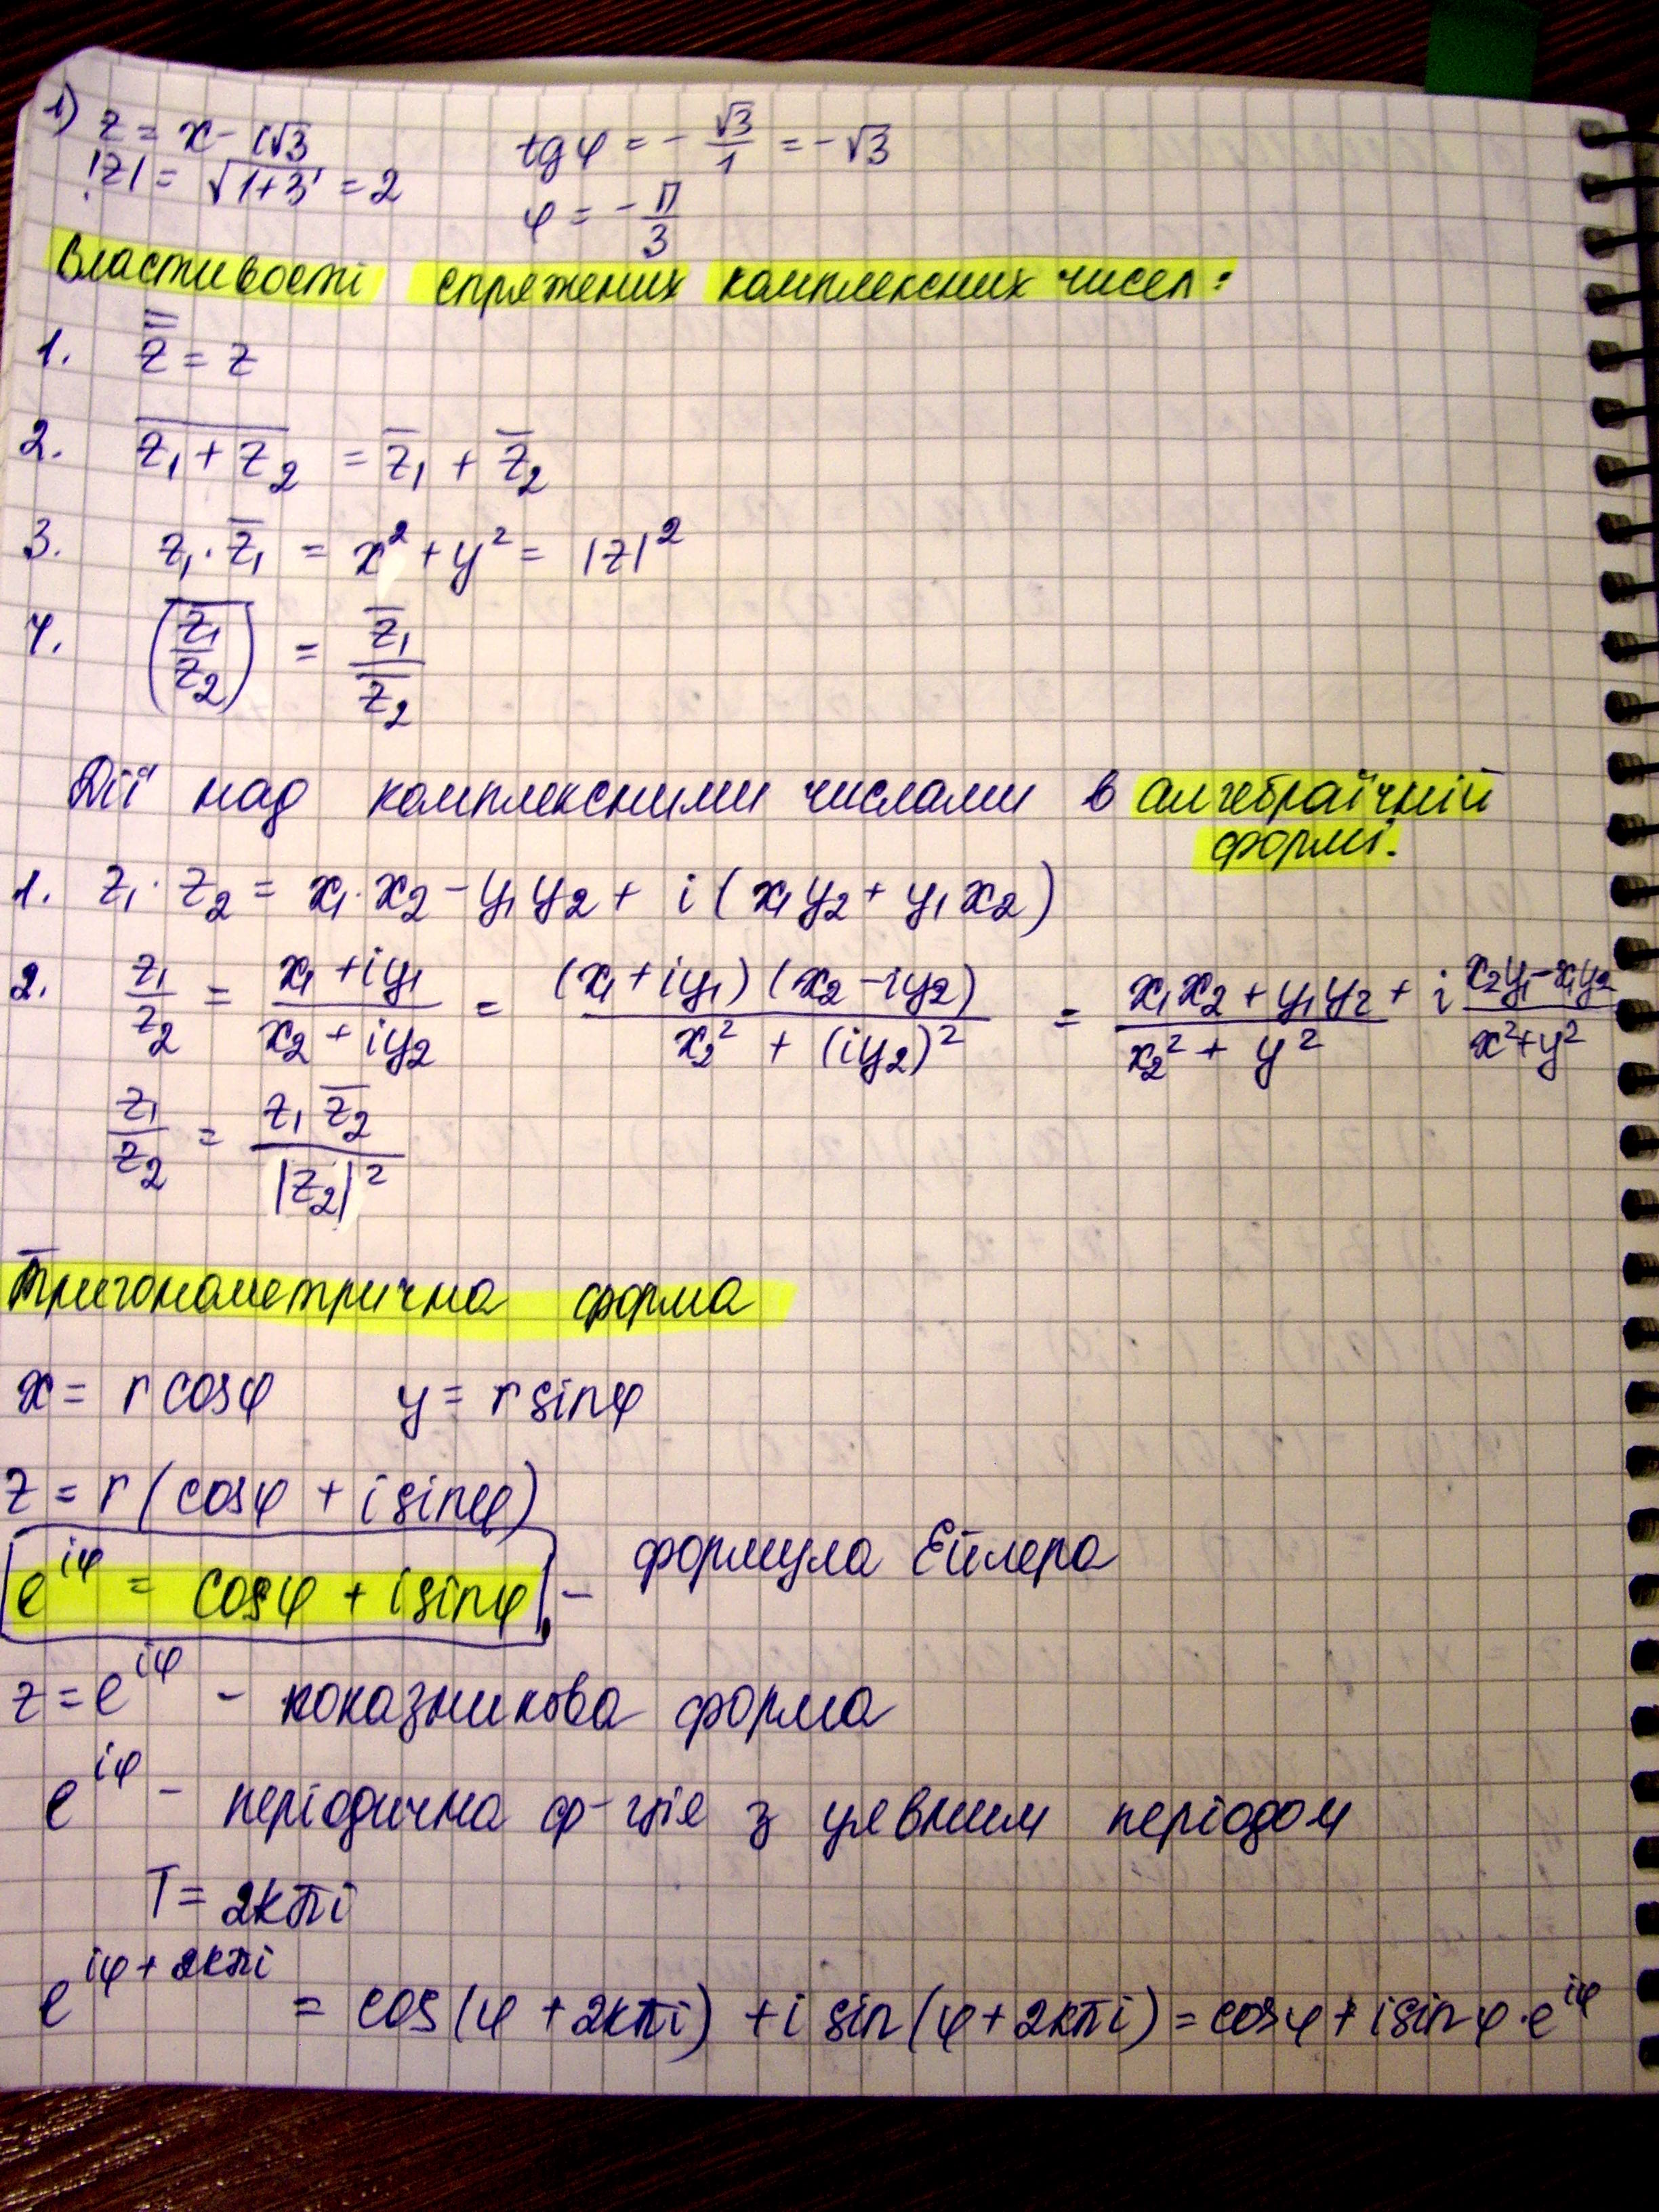 1) z = x - i√3    tg φ = - √3/1 = - √3
|z| = √(1+3) = 2    φ = - π/3
Властивості спряжених комплексних чисел:
1. z̿ = z
2. \overline{z₁ + z₂} = z̄₁ + z̄₂
3. z₁ · z̄₁ = x² + y² = |z|²
4. \overline{(z₁/z₂)} = z̄₁/z̄₂
Дії над комплексними числами в алгебраїчній
формі.
1. z₁ · z₂ = x₁ · x₂ - y₁y₂ + i (x₁y₂ + y₁x₂)
2. z₁/z₂ = (x₁ + iy₁)/(x₂ + iy₂) = (x₁ + iy₁)(x₂ - iy₂)/(x₂² + (iy₂)²) = (x₁x₂ + y₁y₂)/(x₂² + y²) + i (x₂y₁ - x₁y₂)/(x² + y²)
z₁/z₂ = z₁z̄₂/|z₂|²
Тригонометрична форма
x = r cosφ    y = r sinφ
z = r (cosφ + i sinφ)
e^{iφ} = cosφ + i sinφ - формула Ейлера
z = e^{iφ} - показникова форма
e^{iφ} - періодична ф-ція з уявним періодом
T = 2kπi
e^{iφ + 2kπi} = cos(φ + 2kπi) + i sin(φ + 2kπi) = cosφ + i sinφ · e^{iφ}